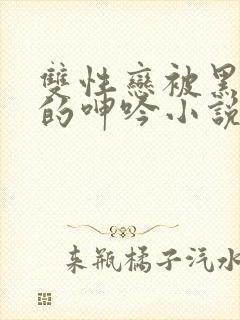 雙性戀被黑
的呻吟小說
來瓶橘子汽水